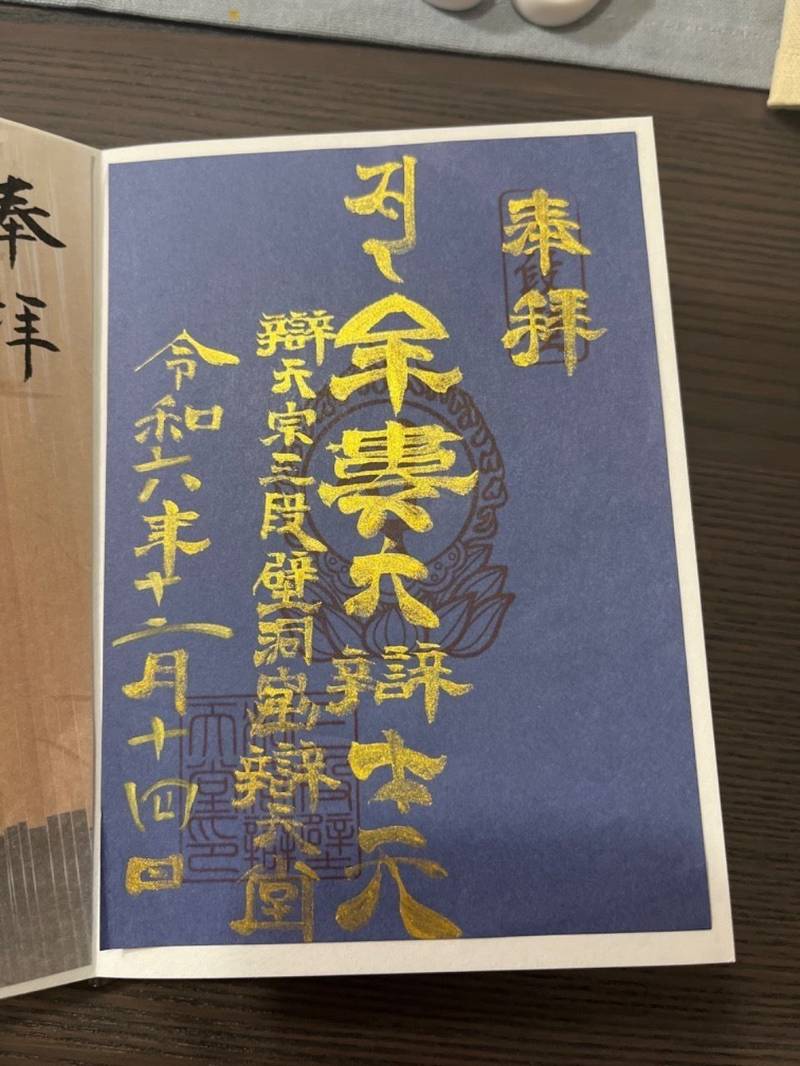 奉拝
牟婁大辯才天
辯天宗三段壁洞窟辯天堂
令和六年十二月十四日
奉拝